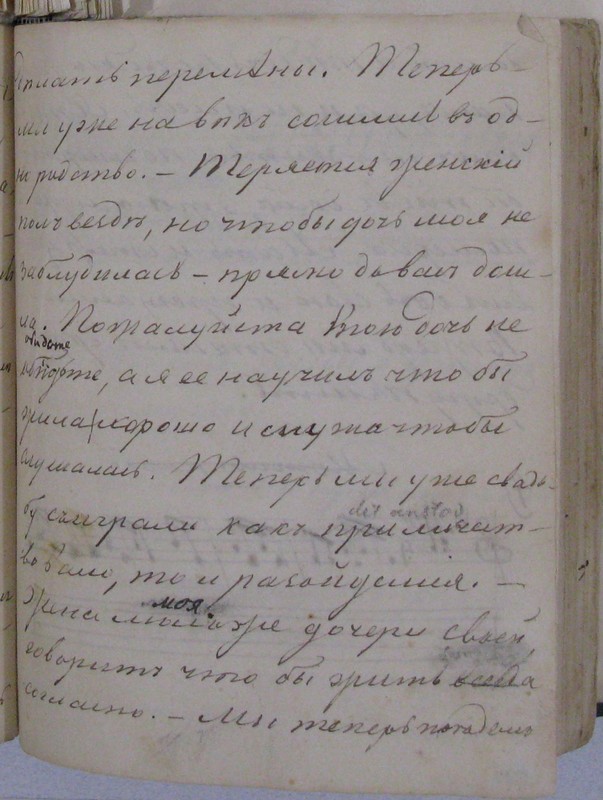 дѣлать перемѣны. Теперь
мы уже на вѣкъ сошлись въ од-
но родство. - Теряется женскій
полъ вездѣ, но чтобы дочь моя не
заблудилась - прямо до васъ дош-
ла. Пожалуйста мою дочь не
обидьте
, а я ее научилъ что бы
жила хорошо и мужа чтобы
слушалась. Теперь мы уже свадь-
бу съиграли какъ приличест-
вовало, то и разойдемся. -
Жена моя же дочери своей
говоритъ что бы жить всегда
согласно. - Мы теперь поедемъ